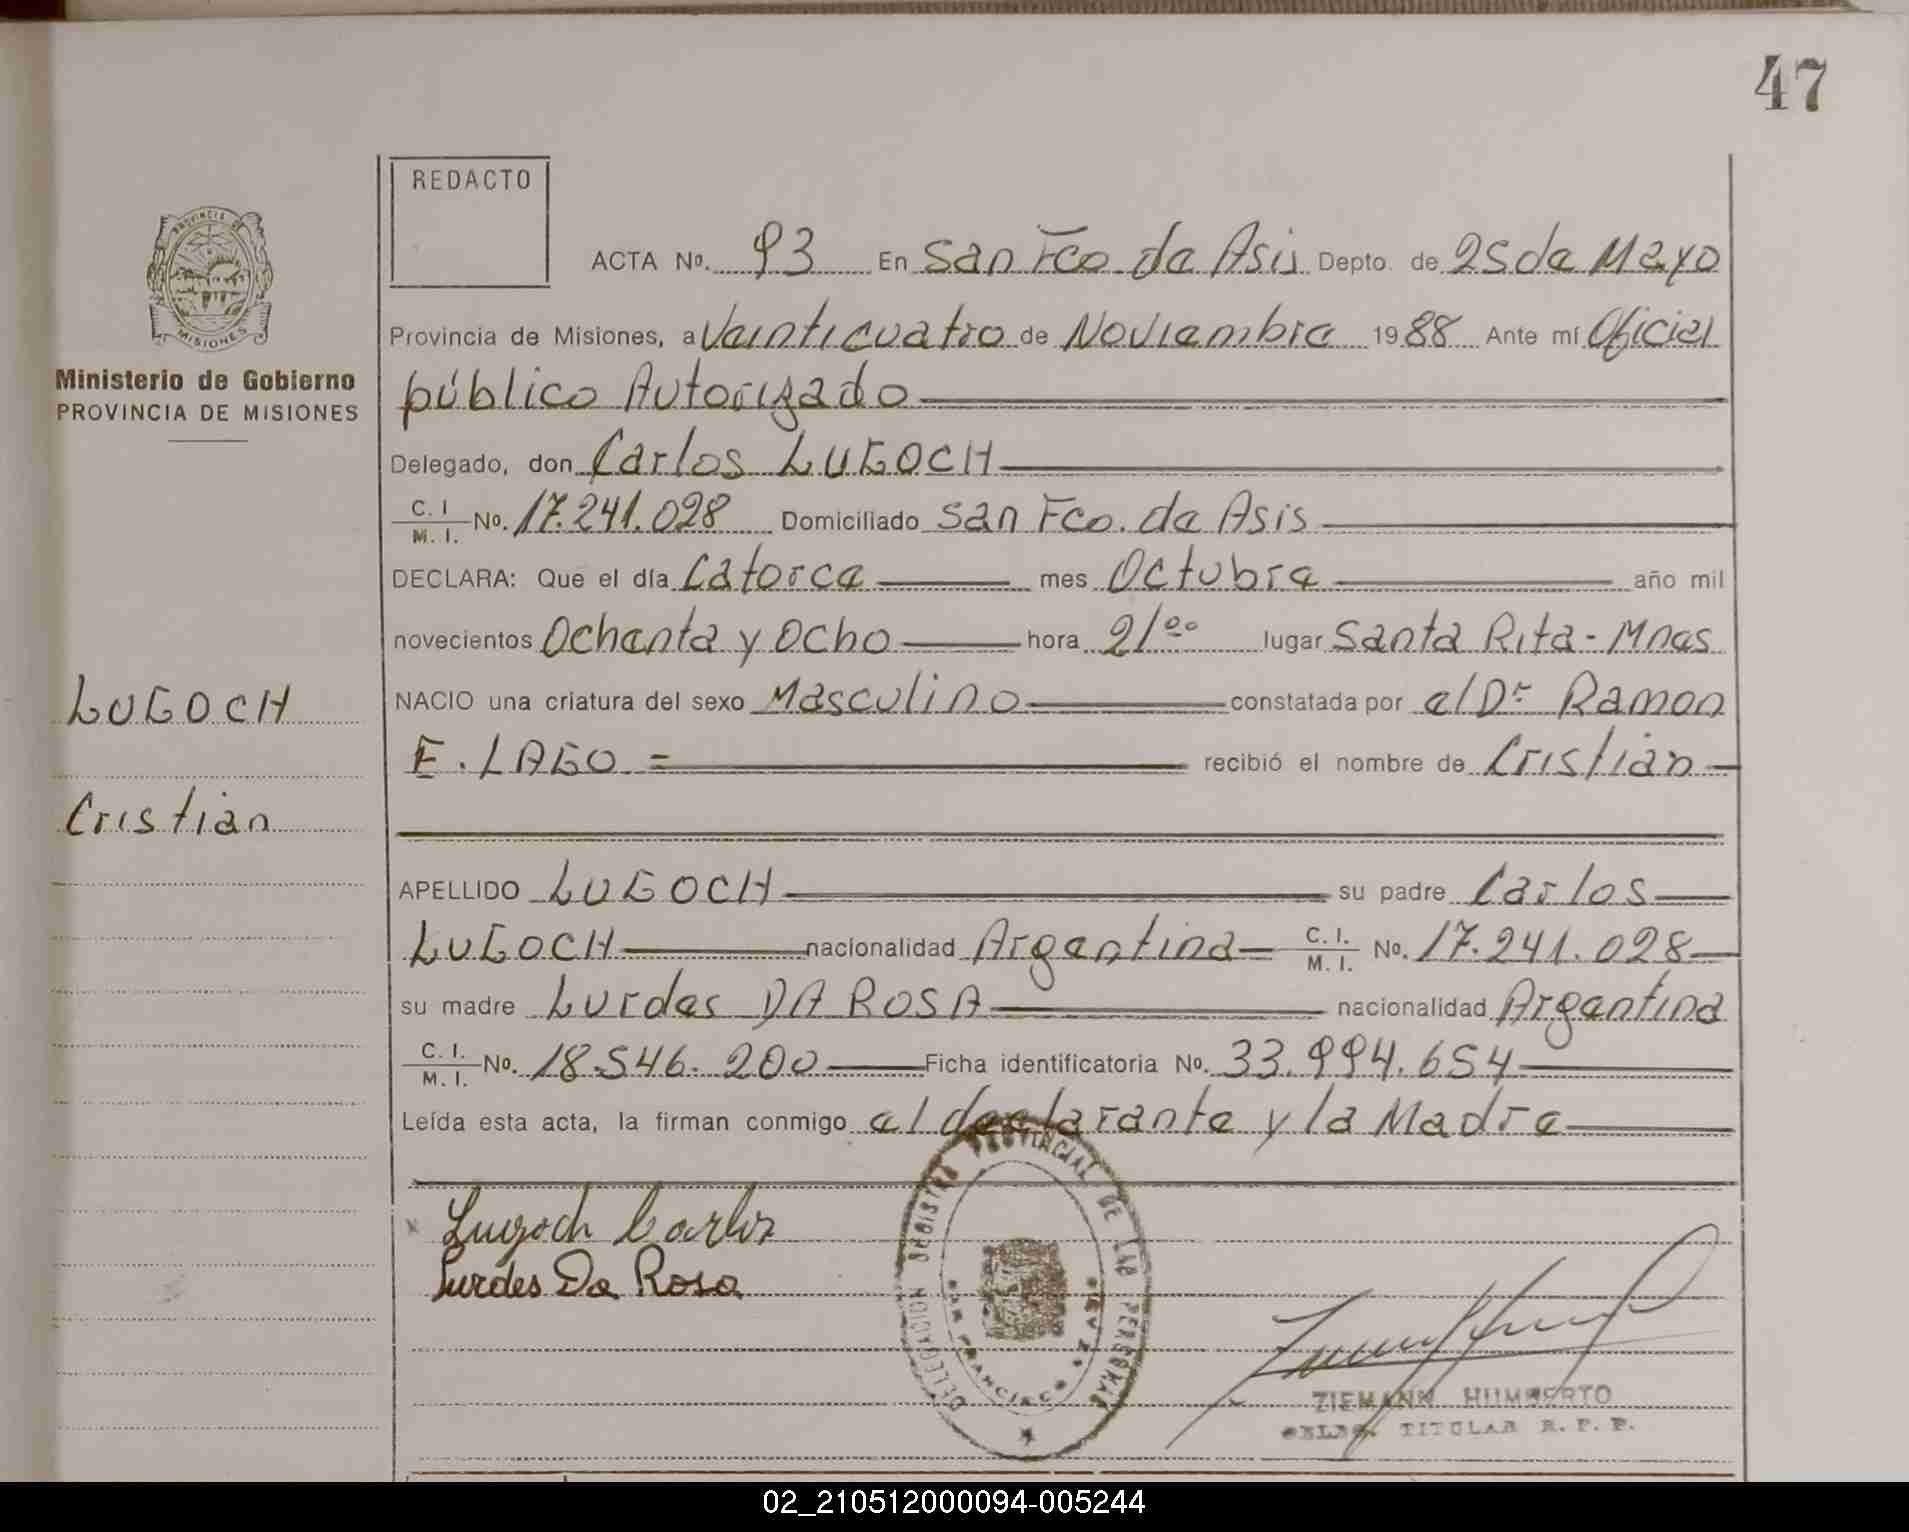 47
REDACTO
PROVINCIA DE
MISIONES
Ministerio de Gobierno
PROVINCIA DE MISIONES
ACTA Nº. 93 En San Fco de Asis Depto. de 25 de Mayo
Provincia de Misiones, a Veinticuatro de Noviembre 1988 Ante mí Oficial
público Autorizado
Delegado, don Carlos LUGOCH
C. I. / M. I. Nº. 17.241.028 Domiciliado San Fco. de Asis
DECLARA: Que el día Catorce mes Octubre año mil
novecientos Ochenta y Ocho hora 21/00 lugar Santa Rita - Mnes
LUGOCH
NACIO una criatura del sexo Masculino constatada por el Dr Ramon
E. LAGO = recibió el nombre de Cristian
Cristian
APELLIDO LUGOCH su padre Carlos
LUGOCH nacionalidad Argentina C. I. / M. I. Nº. 17.241.028
su madre Lurdes DA ROSA nacionalidad Argentina
C. I. / M. I. Nº. 18.546.200 Ficha identificatoria Nº. 33.994.654
Leída esta acta, la firman conmigo el declarante y la Madre
x Lugoch Carlos
Lurdes Da Rosa
DELEGACION REGISTRO PROVINCIAL DE LAS PERSONAS
SAN FRANCISCO
ZIEMANN HUMBERTO
DELEG. TITULAR R. P. P.
02_210512000094-005244